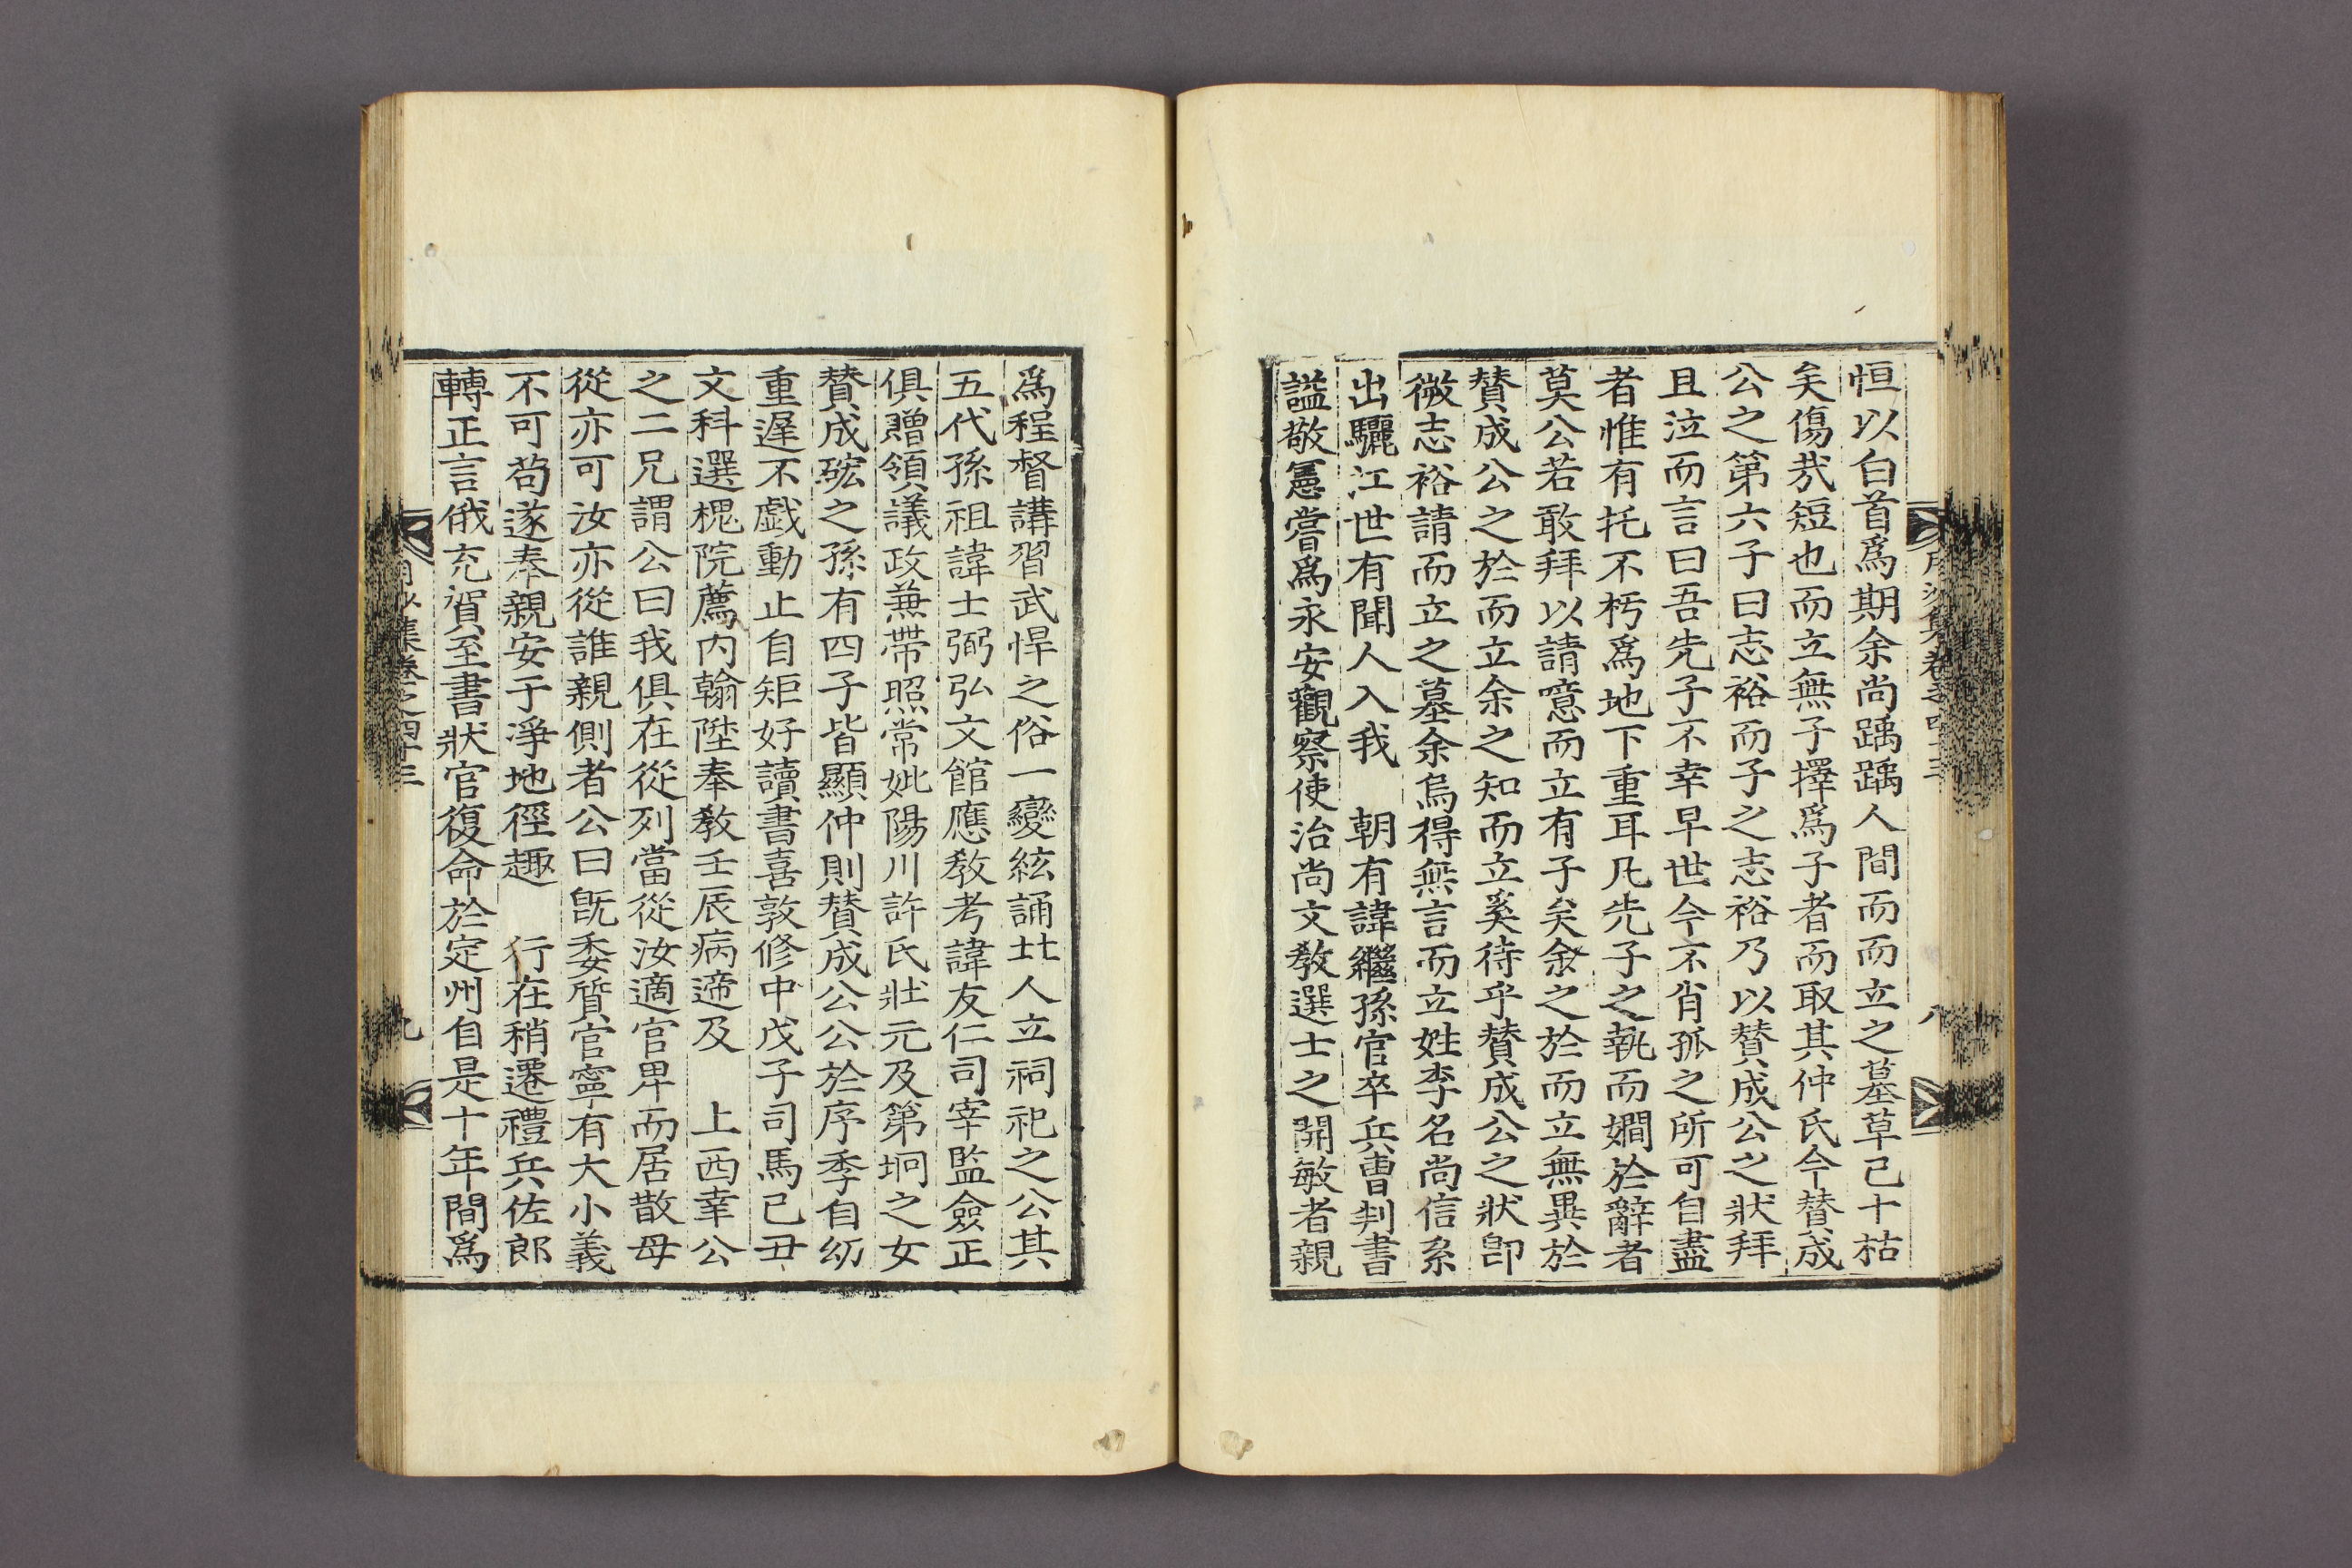 恒以白首爲期余尚踽踽人間而而立之墓草已十枯
矣傷哉短也而立無子擇爲子者而取其仲氏今贊成
公之第六子曰志裕而子之志裕乃以贊成公之狀拜
且泣而言曰吾先子不幸早世今不肖孤之所可自盡
者惟有托不朽爲地下重耳凡先子之執而嫺於辭者
莫公若敢拜以請噫而立有子矣余之於而立無異於
贊成公之於而立余之知而立奚待乎贊成公之狀卽
微志裕請而立之墓余烏得無言而立姓李名尚信系
出驪江世有聞人入我　朝有諱繼孫官卒兵曹判書
謚敬憲嘗爲永安觀察使治尚文敎選士之開敏者親
月沙集卷之四十三
八
爲程督講習武悍之俗一變絃誦北人立祠祀之公其
五代孫祖諱士弼弘文館應敎考諱友仁司宰監僉正
俱贈領議政兼帶照常妣陽川許氏壯元及第坰之女
贊成硡之孫有四子皆顯仲則贊成公公於序季自幼
重遲不戱動止自矩好讀書喜敦修中戊子司馬己丑
文科選槐院薦內翰陞奉敎壬辰病遞及　上西幸公
之二兄謂公曰我俱在從列當從汝適官畀而居散母
從亦可汝亦從誰親側者公曰旣委質官寧有大小義
不可苟遂奉親安于淨地徑趣　行在稍遷禮兵佐郎
轉正言俄充賀至書狀官復命於定州自是十年間爲
月沙集卷之四十三
九